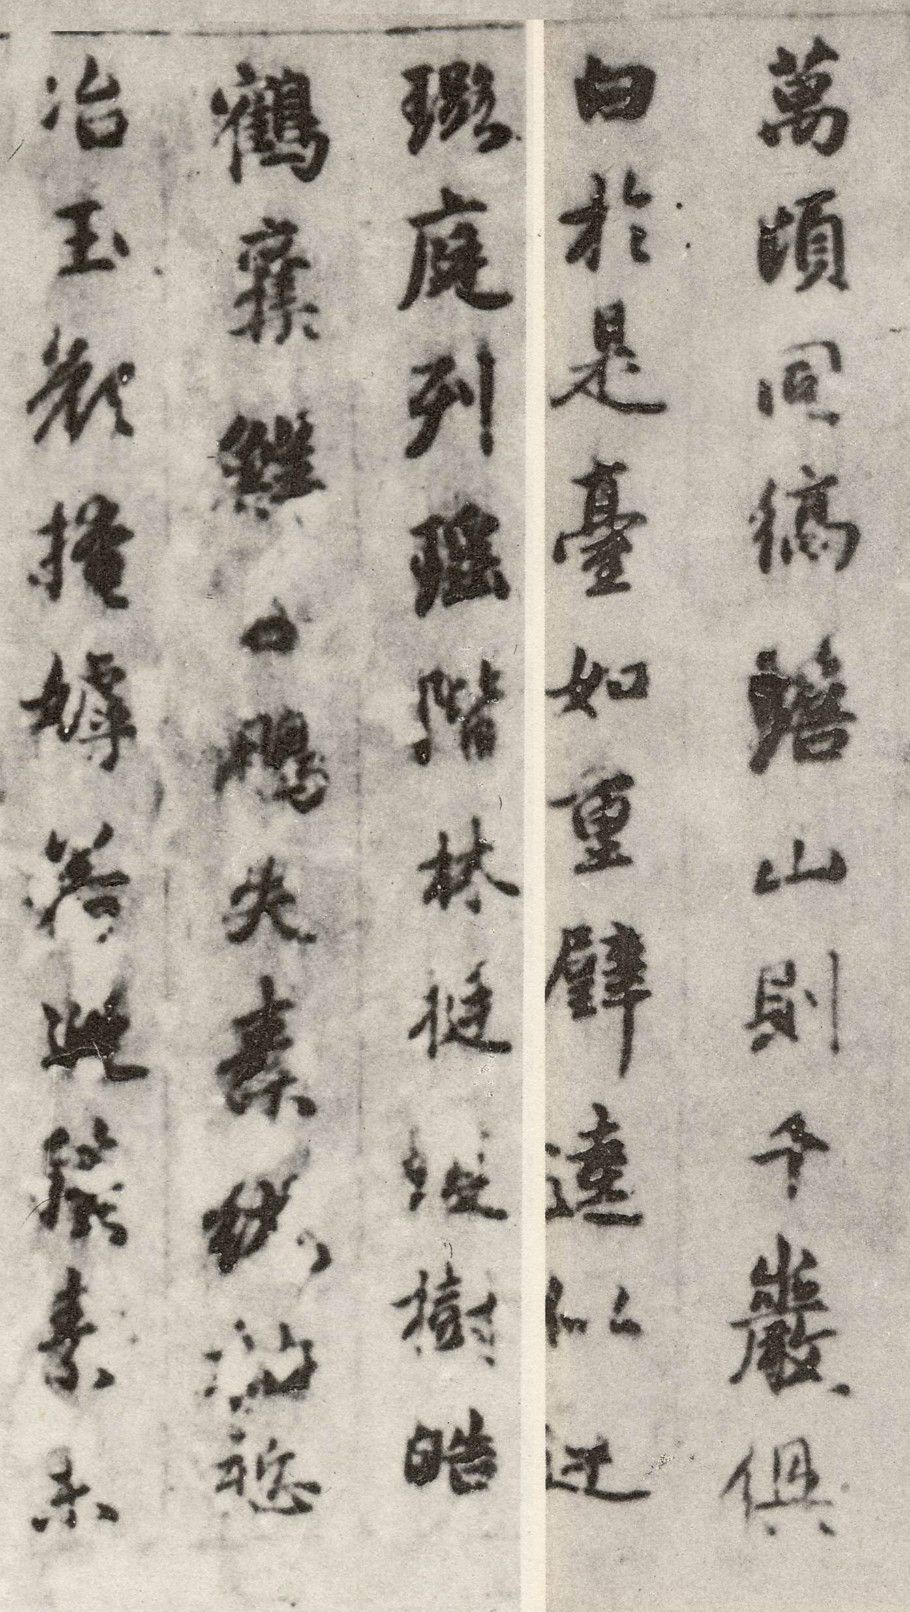 萬頃同縞瞻山則千巖俱
白於是臺如重璧逵似連
璐庭列瑤階林挺瓊樹皓
鶴奪鮮白鷳失素紈袖慙
冶玉顏掩嫮若迺積素未